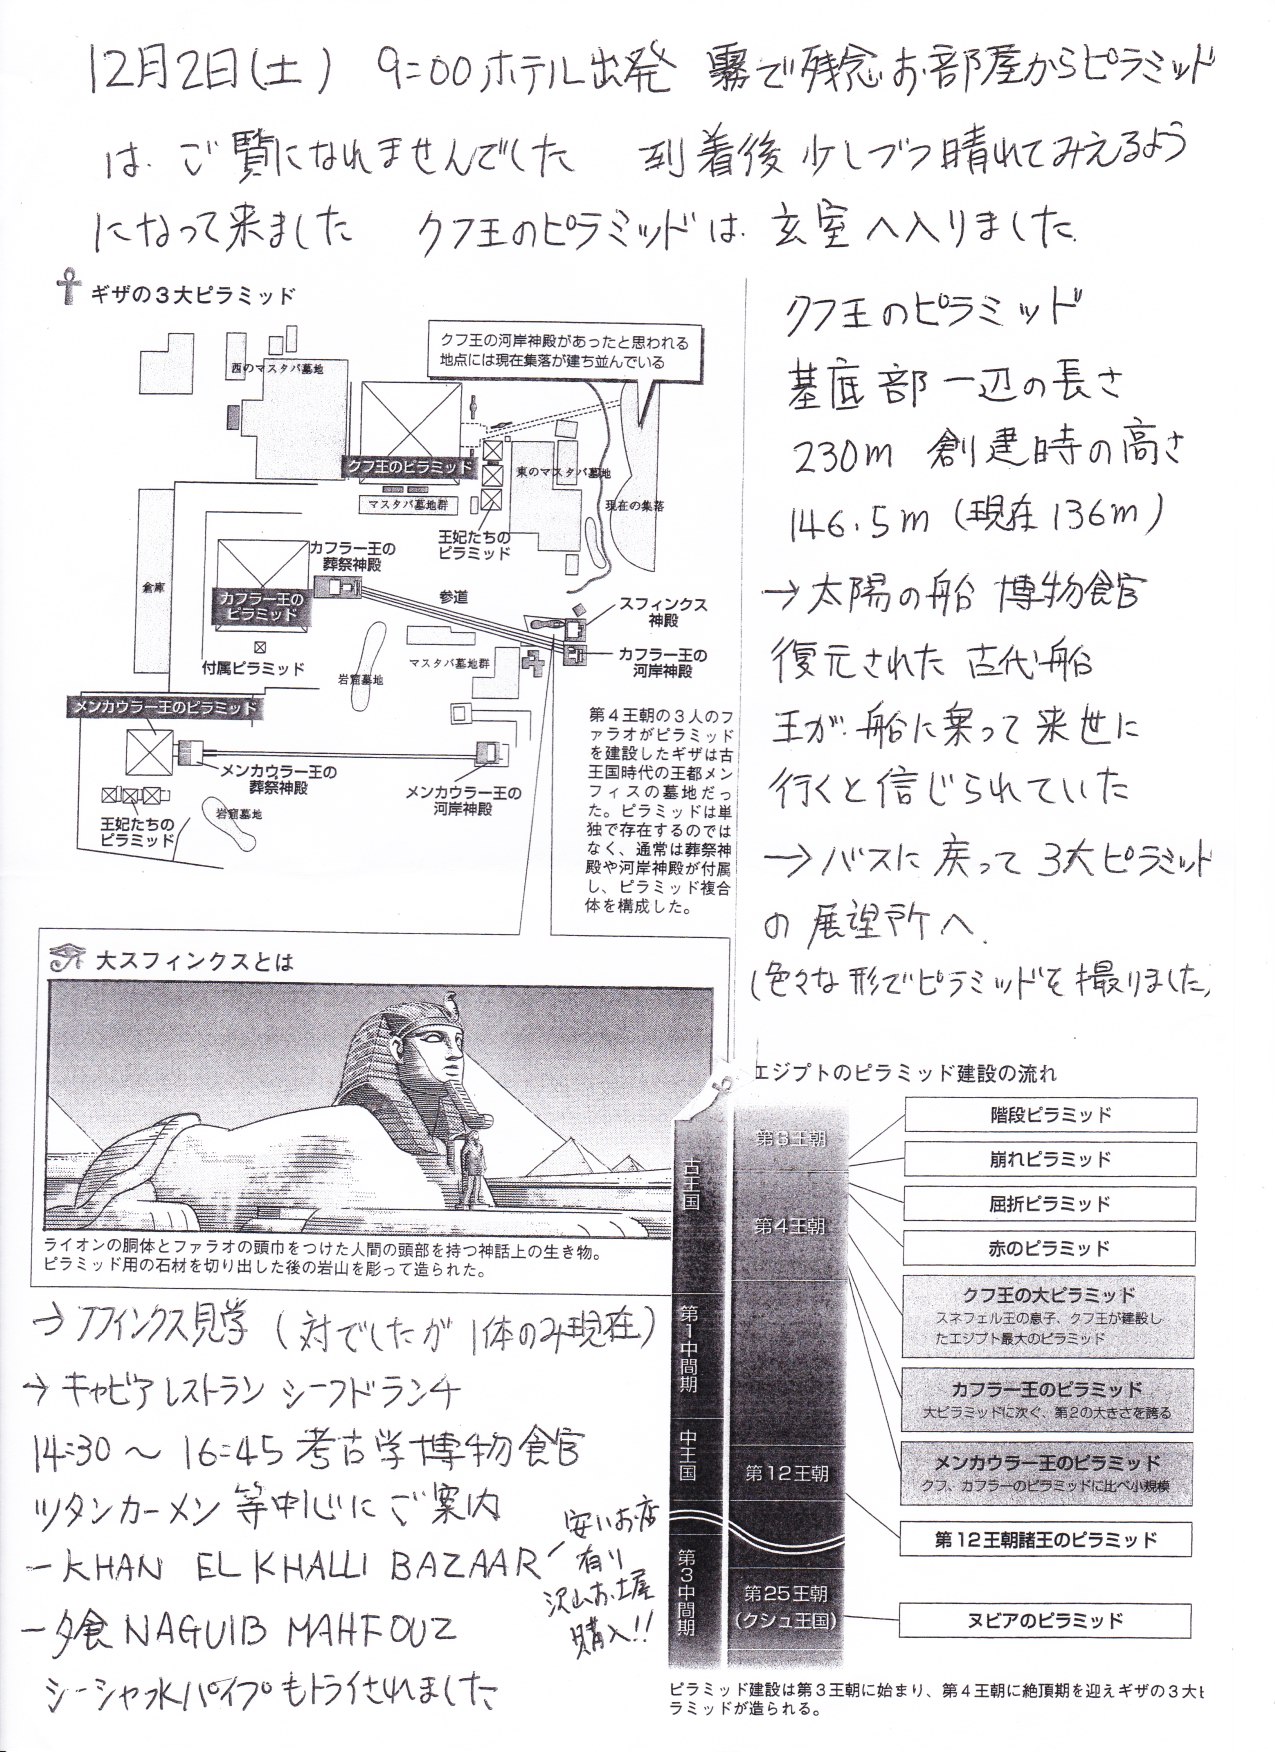 12月2日(土) 9:00ホテル出発 霧で残念お部屋からピラミッド
は、ご覧になれませんでした 到着後 少しづつ晴れてみえるよう
になって来ました クフ王のピラミッドは、玄室へ入りました。
ギザの3大ピラミッド
クフ王の河岸神殿があったと思われる
地点には現在集落が建ち並んでいる
西のマスタバ墓地
クフ王のピラミッド
東のマスタバ墓地
マスタバ墓地群
現在の集落
王妃たちの
ピラミッド
カフラー王の
葬祭神殿
倉庫
カフラー王の
ピラミッド
参道
スフィンクス
神殿
付属ピラミッド
岩窟墓地
マスタバ墓地群
カフラー王の
河岸神殿
メンカウラー王のピラミッド
メンカウラー王の
葬祭神殿
メンカウラー王の
河岸神殿
王妃たちの
ピラミッド
岩窟墓地
第4王朝の3人のフ
ァラオがピラミッド
を建設したギザは古
王国時代の王都メン
フィスの墓地だっ
た。ピラミッドは単
独で存在するのでは
なく、通常は葬祭神
殿や河岸神殿が付属
し、ピラミッド複合
体を構成した。
クフ王のピラミッド
基底部一辺の長さ
230m 創建時の高さ
146.5m (現在136m)
→太陽の船 博物館
復元された 古代船
王が、船に乗って来世に
行くと信じられていた
→バスに戻って3大ピラミッド
の展望所へ、
(色々な形でピラミッドを撮りました)
大スフィンクスとは
ライオンの胴体とファラオの頭巾をつけた人間の頭部を持つ神話上の生き物。
ピラミッド用の石材を切り出した後の岩山を彫って造られた。
エジプトのピラミッド建設の流れ
古王国
第1中間期
中王国
第3中間期
第3王朝
第4王朝
第12王朝
第25王朝
(クシュ王国)
階段ピラミッド
崩れピラミッド
屈折ピラミッド
赤のピラミッド
クフ王の大ピラミッド
スネフェル王の息子、クフ王が建設し
たエジプト最大のピラミッド
カフラー王のピラミッド
大ピラミッドに次ぐ、第2の大きさを誇る
メンカウラー王のピラミッド
クフ、カフラーのピラミッドに比べ小規模
第12王朝諸王のピラミッド
ヌビアのピラミッド
ピラミッド建設は第3王朝に始まり、第4王朝に絶頂期を迎えギザの3大ピ
ラミッドが造られる。
→スフィンクス見学 (対でしたが1体のみ現在)
→キャビアレストラン シーフドランチ
14:30～16:45 考古学博物館
ツタンカーメン等中心にご案内
－KHAN EL KHALLI BAZAAR
安いお店
有り
沢山お土産
購入!!
－夕食 NAGUIB MAHFOUZ
シーシャ水パイプもトライされました